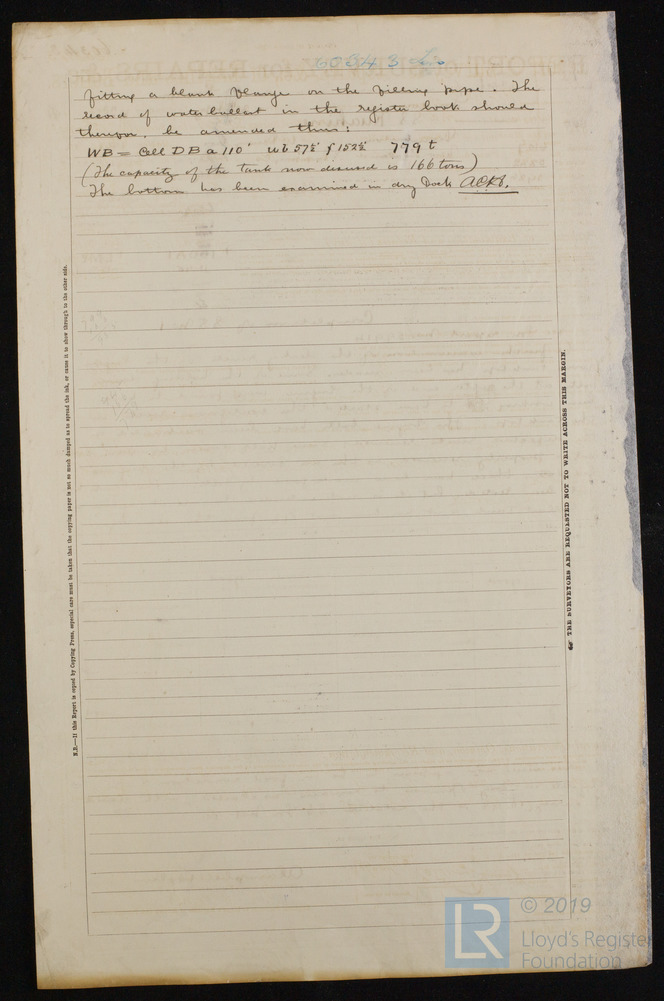 60343 Liv
fitting a blank flange on the filling pipe. The
record of water ballast in the register book should
thereupon, be amended thus:
WB = Cell D B a 110' u b 57½' f 152½' 779 t
(The capacity of the tank now disused is 166 tons)
The bottom has been examined in dry Dock
N.B.—If this Report is copied by Copying Press, especial care must be taken that the copying paper is not so much damped as to spread the ink, or cause it to show through to the other side.
THE SURVEYORS ARE REQUESTED NOT TO WRITE ACROSS THIS MARGIN.
LR
© 2019
Lloyd's Register
Foundation